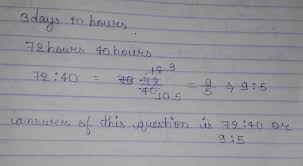 3days 40 hours
72hours 40hours
72:40 = 72 18 9 / 40 10 5 = 9/5 ⇒ 9:5
answer of this question is 72:40 or
9:5